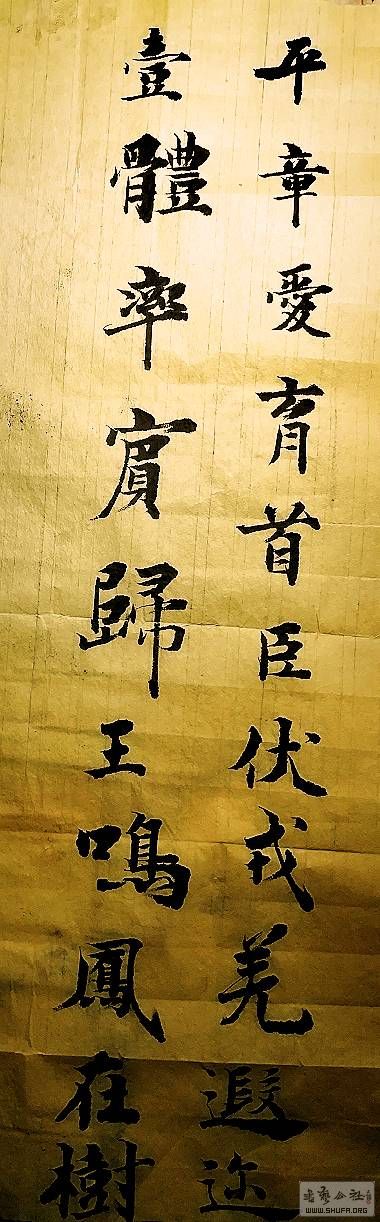 平章愛育首臣伏戎羌遐迩
壹體率賓歸王鳴鳳在樹
書藝公社
WWW.SHUFA.ORG